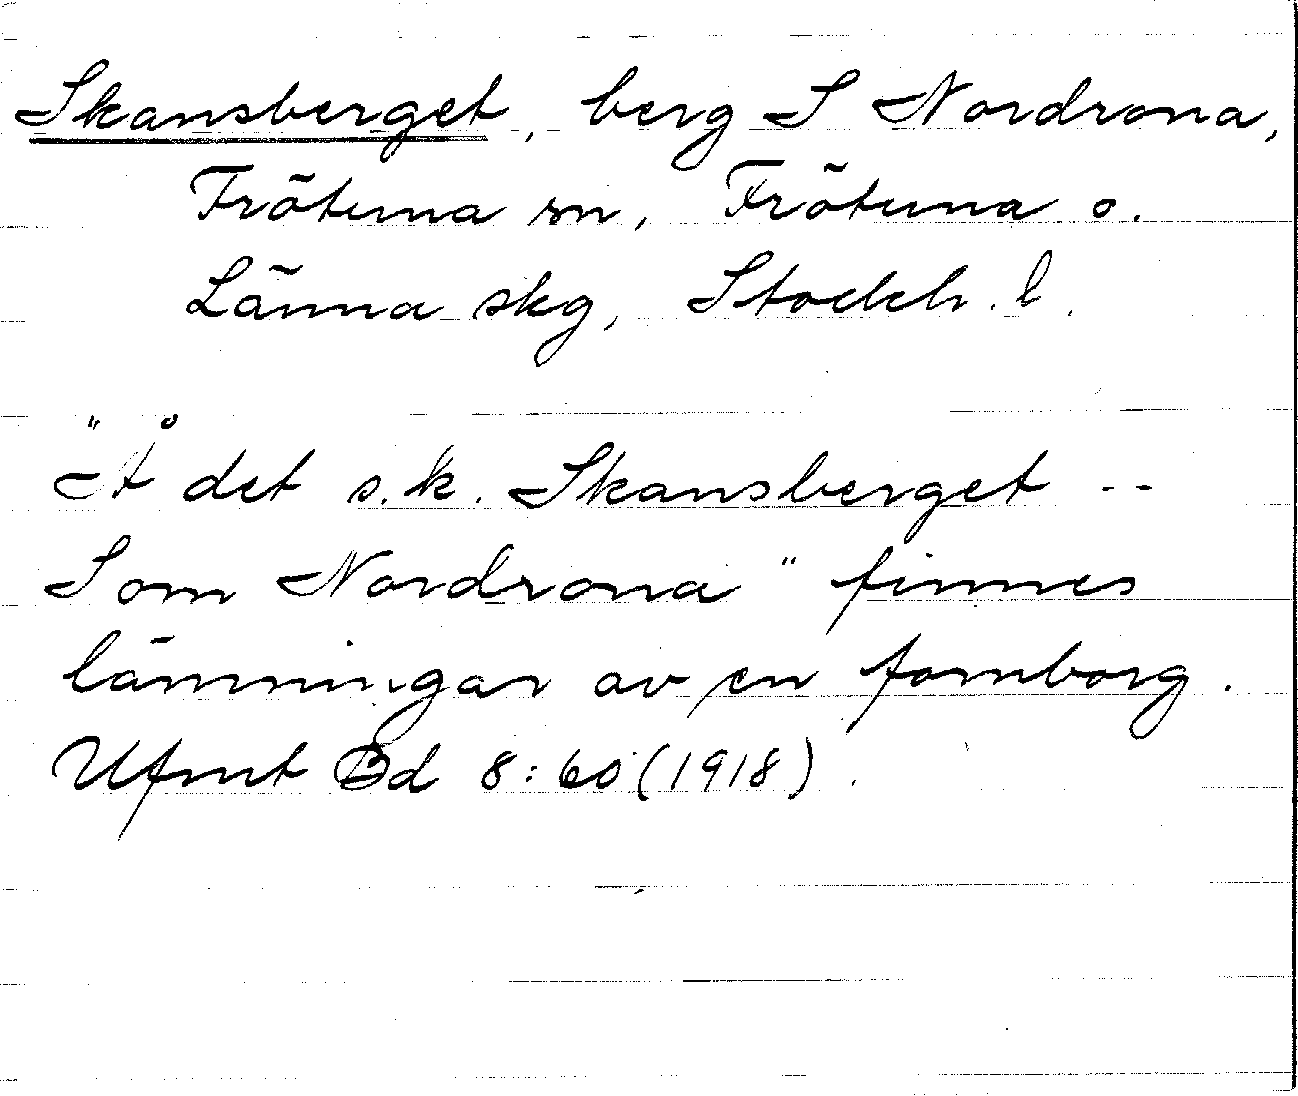 Skansberget, berg S Nordrona,
Frötuna sn, Frötuna o.
Länna skg, Stockh. l.
"Å det s.k. Skansberget --
S om Nordrona" finnes
lämningar av en fornborg.
Ufmt Bd 8:60 (1918).